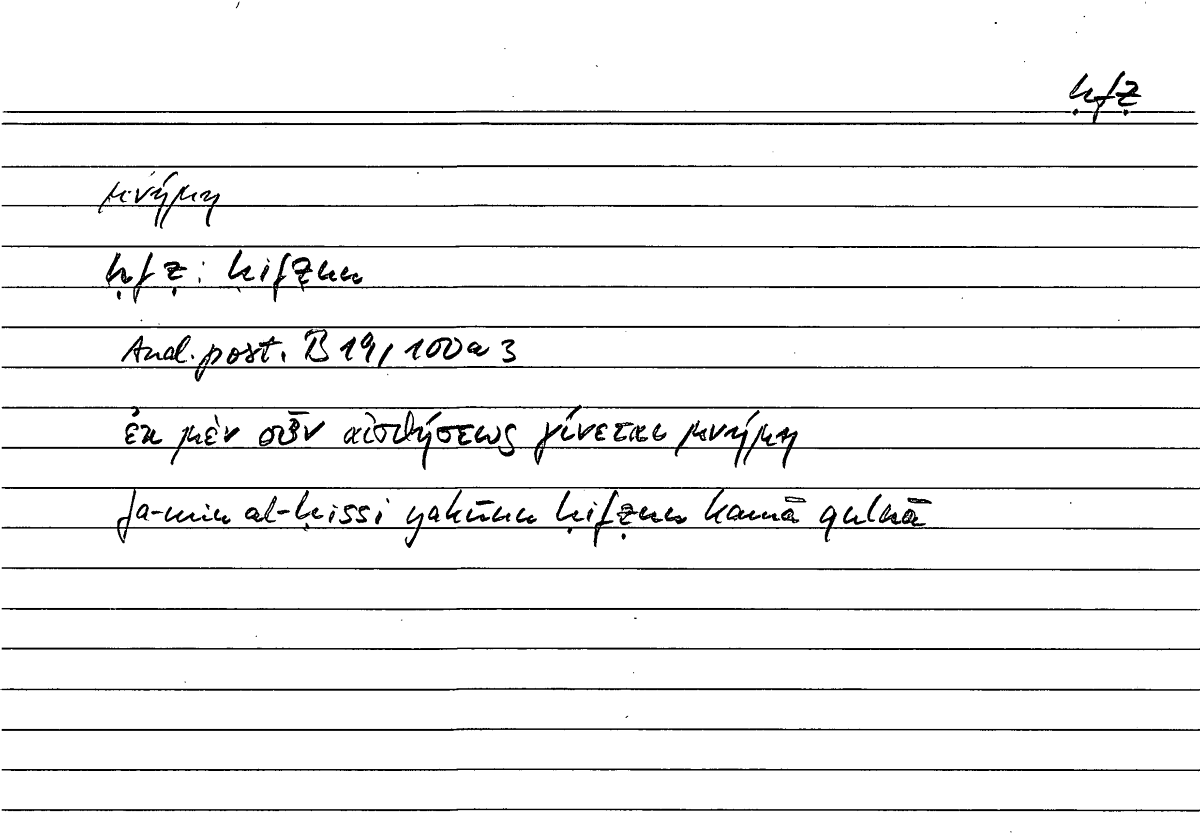 ḥfẓ
μνήμη
ḥfẓ: ḥifẓun
Anal. post. B 19, 100a3
ἐκ μὲν οὖν αἰσθήσεως γίνεται μνήμη
fa-min al-ḥissi yakūnu ḥifẓun kamā qulnā